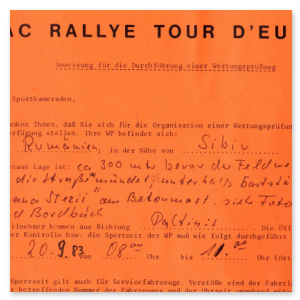 AC RALLYE TOUR D'EU
Anweisung für die Durchführung einer Wertungsprüfung
Sportkameraden,
nken Ihnen, daß Sie sich für die Organisation einer Wertungsprüfun
erfügung stellen. Ihre WP befindet sich?
Rumänien, in der Nähe von Sibiu
enaue Lage ist: ca 300 mtr bevor du Feldwe
die Straße mündet, unterhalb
am Betonmast. siehe Foto
d Bordbuch
eilnehmer kommen aus Richtung Paltinis
er Kontrolle bzw. die Sperrzeit der WP muß wie folgt durchgeführt
20.9.83 von 08.00 Uhr bis 11.00 Uhr (Ort
perrzeit gilt auch für Servicefahrzeuge. Versehen sind die Fahrtle
betreffenden Nummer des Fahrzeuges und der Uhrzeit angewendet